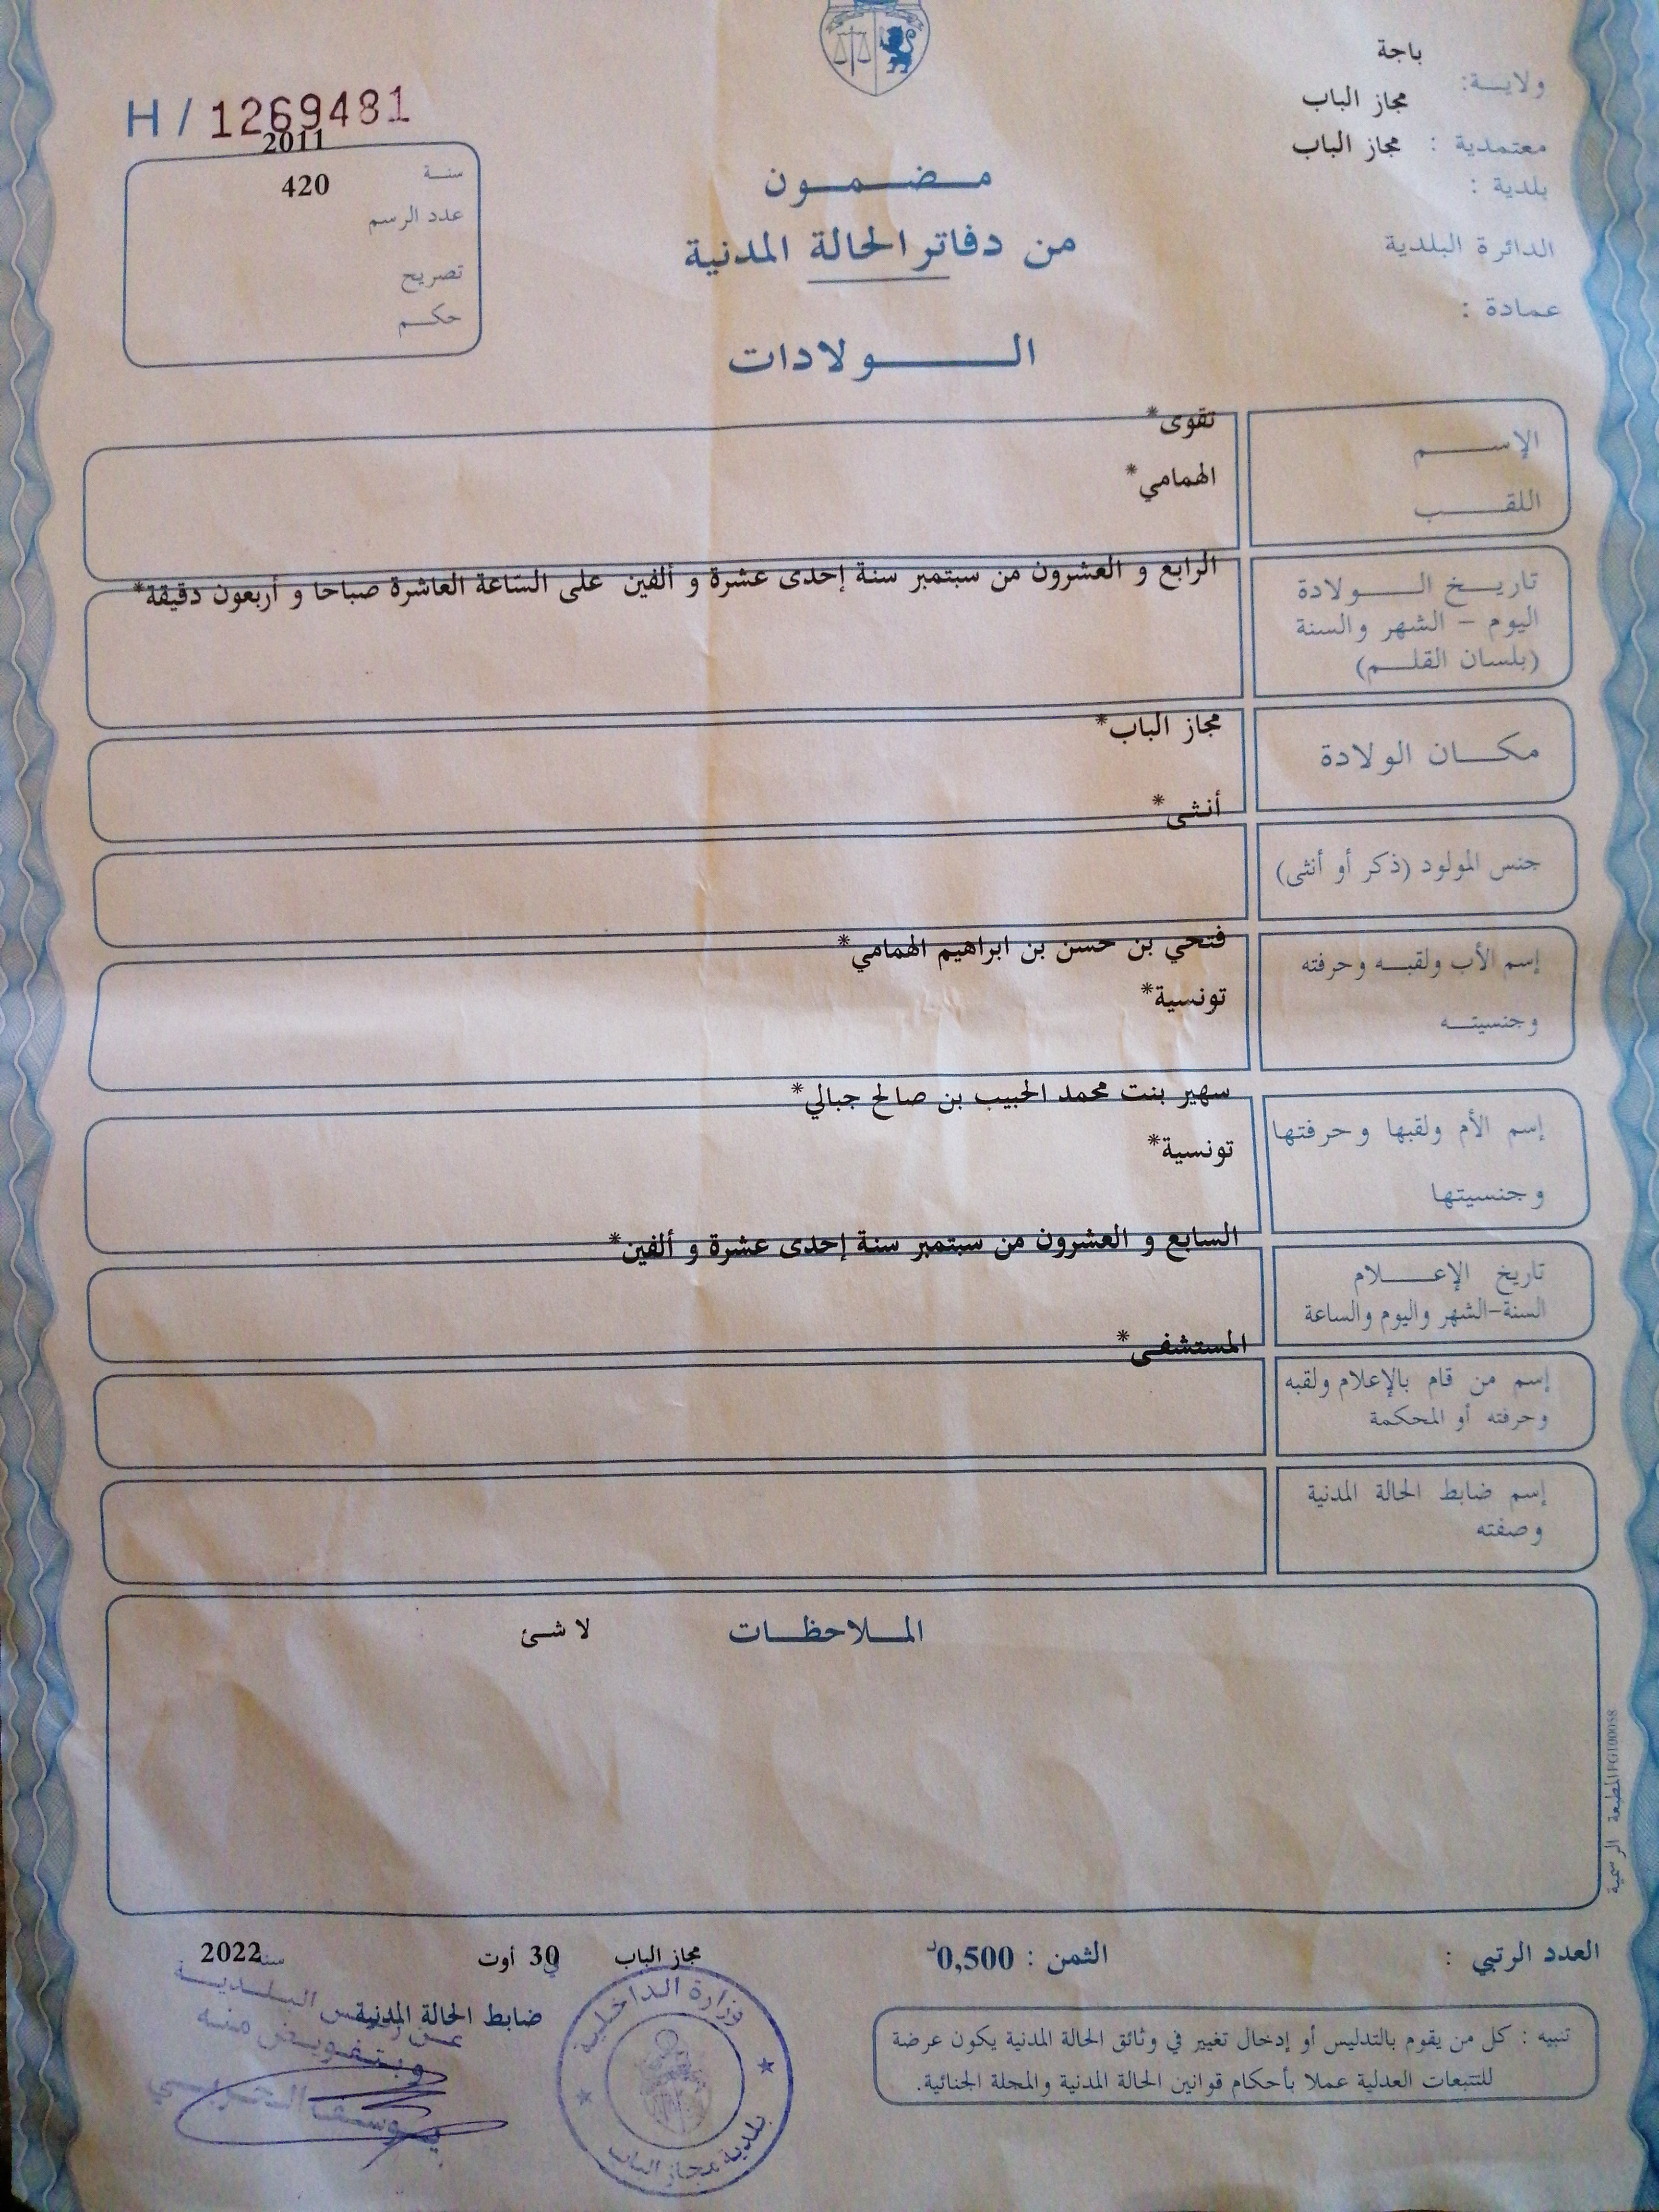 باجة
ولايــة:
مجاز الباب
معتمدية : مجاز الباب
بلدية :
الدائرة البلدية
عمادة :
H / 1269481
2011
سنـة
420
عدد الرسم
تصريح
حكـم
مـضـمـون
من دفاتر الحالة المدنية
الـولادات
الإسـم
تقوى*
اللقـب
الهمامي*
تاريـخ الـولادة
اليوم - الشهر والسنة
(بلسان القلـم)
الرابع و العشرون من سبتمبر سنة إحدى عشرة و ألفين على الساعة العاشرة صباحا و أربعون دقيقة*
مكـان الولادة
مجاز الباب*
جنس المولود (ذكر أو أنثى)
أنثى*
إسم الأب ولقبـه وحرفته
فتحي بن حسن بن ابراهيم الهمامي*
وجنسيتـه
تونسية*
إسم الأم ولقبها وحرفتها
سهير بنت محمد الحبيب بن صالح جبالي*
وجنسيتها
تونسية*
تاريخ الإعـلام
السنة-الشهر واليوم والساعة
السابع و العشرون من سبتمبر سنة إحدى عشرة و ألفين*
إسم من قام بالإعلام ولقبه
وحرفته أو المحكمة
المستشفى*
إسم ضابط الحالة المدنية
وصفته
المـلاحظـات
لا شئ
المطبعة الرسمية
العدد الرتبي :
الثمن : 0,500د
مجاز الباب
في 30 أوت
سنة 2022
ضابط الحالة المدنية
عن رئيس البلدية
وبتفويض منه
وزارة الداخلية
بلدية مجاز الباب
تنبيه : كل من يقوم بالتدليس أو إدخال تغيير في وثائق الحالة المدنية يكون عرضة
للتتبعات العدلية عملا بأحكام قوانين الحالة المدنية والمجلة الجنائية.